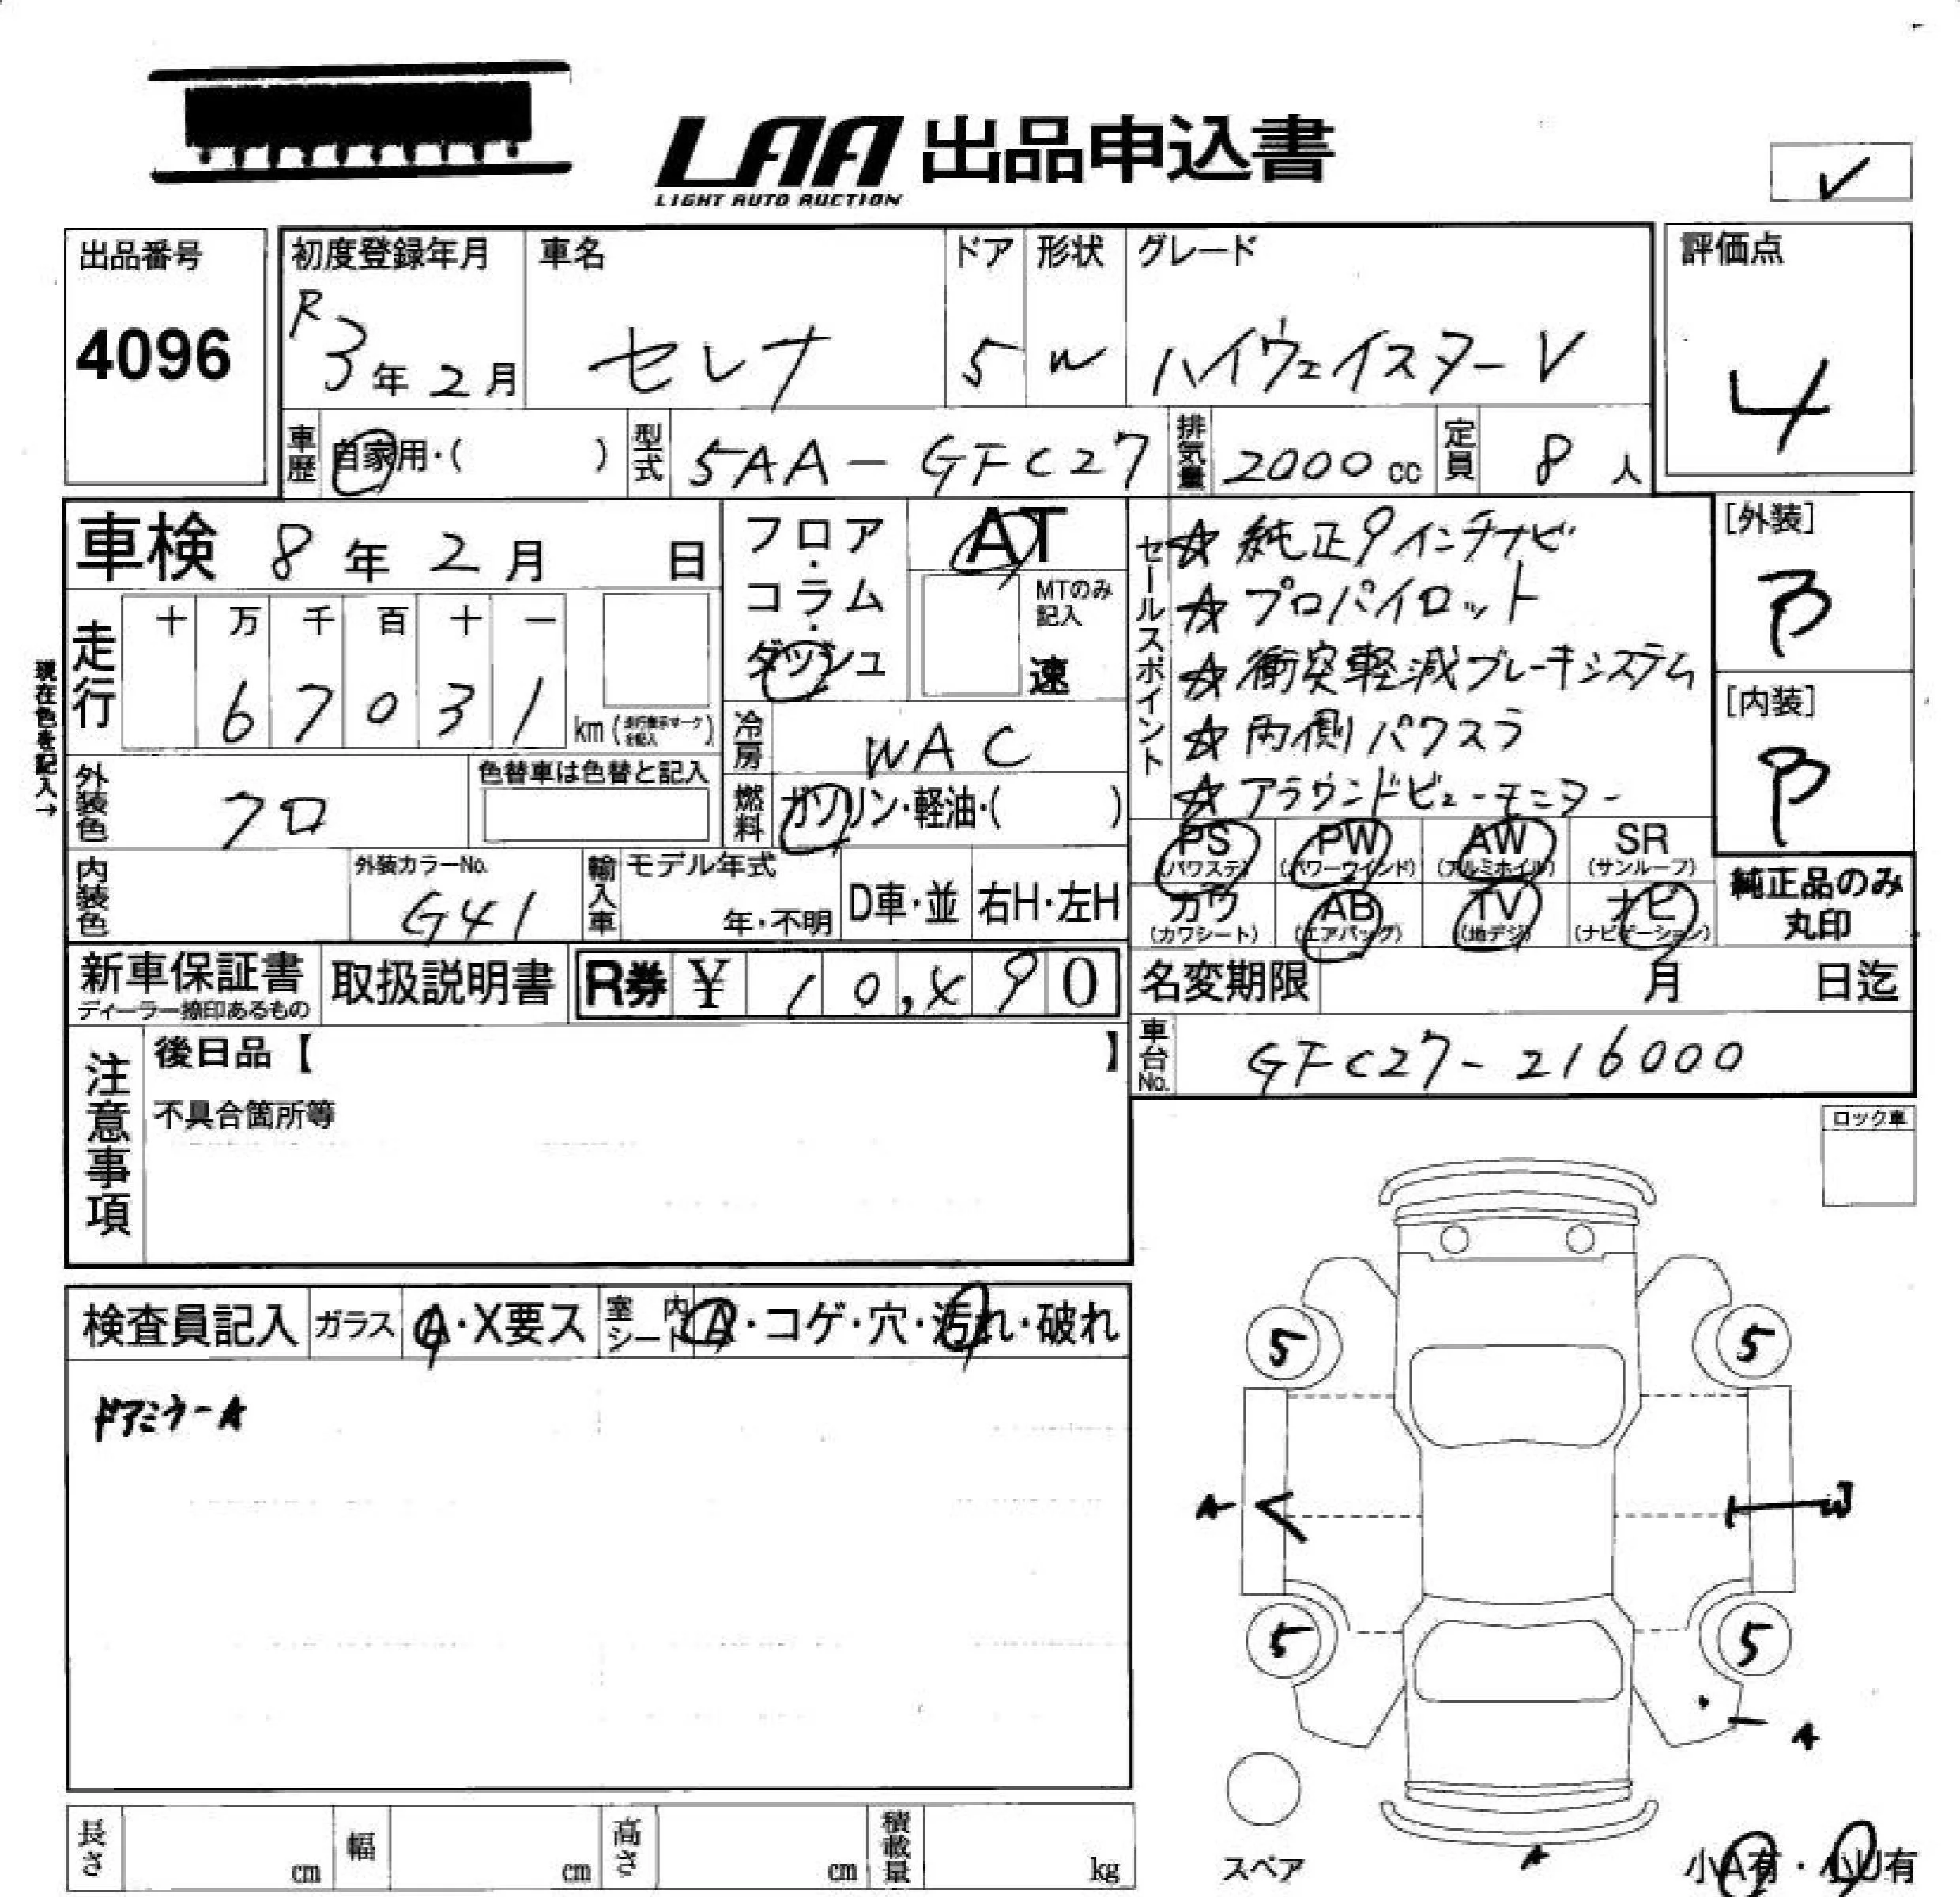 LAA 出品申込書
LIGHT AUTO AUCTION
✓
出品番号
4096
初度登録年月
R3年2月
車名
セレナ
ドア
5
形状
W
グレード
ハイウェイスターV
評価点
4
車歴
自家用・( )
型式
5AA-GFC27
排気量
2000cc
定員
8人
車検 8年2月 日
フロア・コラム・ダッシュ
AT
MTのみ記入
速
セールスポイント
☆純正9インチナビ
☆プロパイロット
☆衝突軽減ブレーキシステム
☆両側パワスラ
☆アラウンドビューモニター
[外装]
B
[内装]
B
現在色を記入→
走行
十 万 千 百 十 一
6 7 0 3 1 km (走行表示マークを記入)
冷房
WAC
燃料
ガソリン・軽油・( )
外装色
クロ
色替車は色替と記入
内装色
外装カラーNo.
G41
輸入車
モデル年式
年・不明
D車・並
右H・左H
PS (パワステ)
PW (パワーウインド)
AW (アルミホイル)
SR (サンルーフ)
カワ (カワシート)
AB (エアバッグ)
TV (地デジ)
ナビ (ナビゲーション)
純正品のみ丸印
新車保証書
ディーラー捺印あるもの
取扱説明書
R券 ¥
名変期限 月 日迄
車台No.
GFC27-216000
注意事項
後日品【 】
不具合箇所等
ロック車
検査員記入
ガラス
A・X要ス
室内シート
A・コゲ・穴・汚れ・破れ
ドアミラーA
5 5
A W
5 5
A
A
スペア
小A有・小U有
長さ cm
幅 cm
高さ cm
積載量 kg